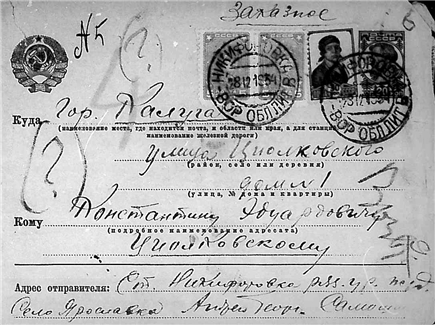 Заказное
N 5
(?)
НИКИФОРОВКА
28 12 1934
ВОР. ОБЛ.
Куда гор. Калуга
(наименование места, где находится почта, и области или края, а для станций наименование железной дороги)
улица Циолковского
(район, село или деревня)
дом 1
(улица, № дома и квартиры)
(?)
Кому Константину Эдуардовичу
(подробное наименование адресата)
Циолковскому
Адрес отправителя: Ст. Никифоровка
Село Ярославка Андрей Георг.